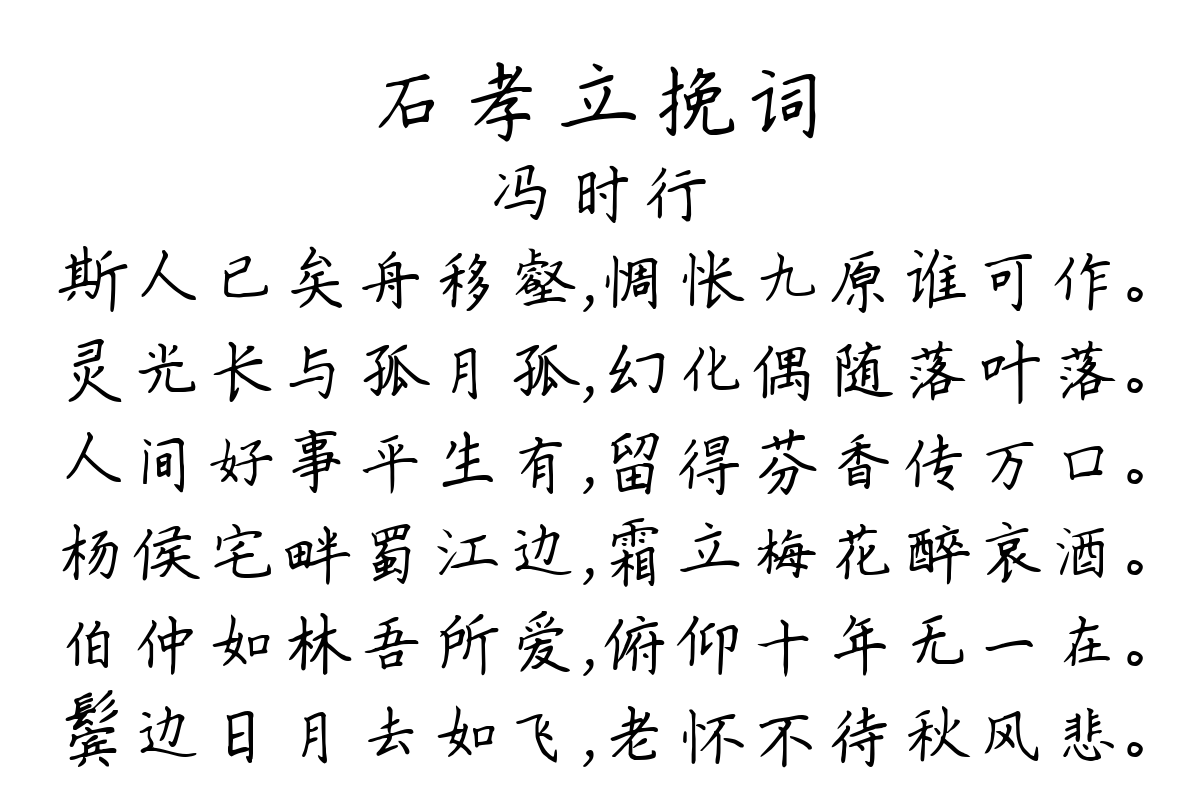 石孝立挽词
冯时行
斯人已矣舟移壑,惆怅九原谁可作。
灵光长与孤月孤,幻化偶随落叶落。
人间好事平生有,留得芬香传万口。
杨侯宅畔蜀江边,霜立梅花醉哀酒。
伯仲如林吾所爱,俯仰十年无一在。
鬓边日月去如飞,老怀不待秋风悲。